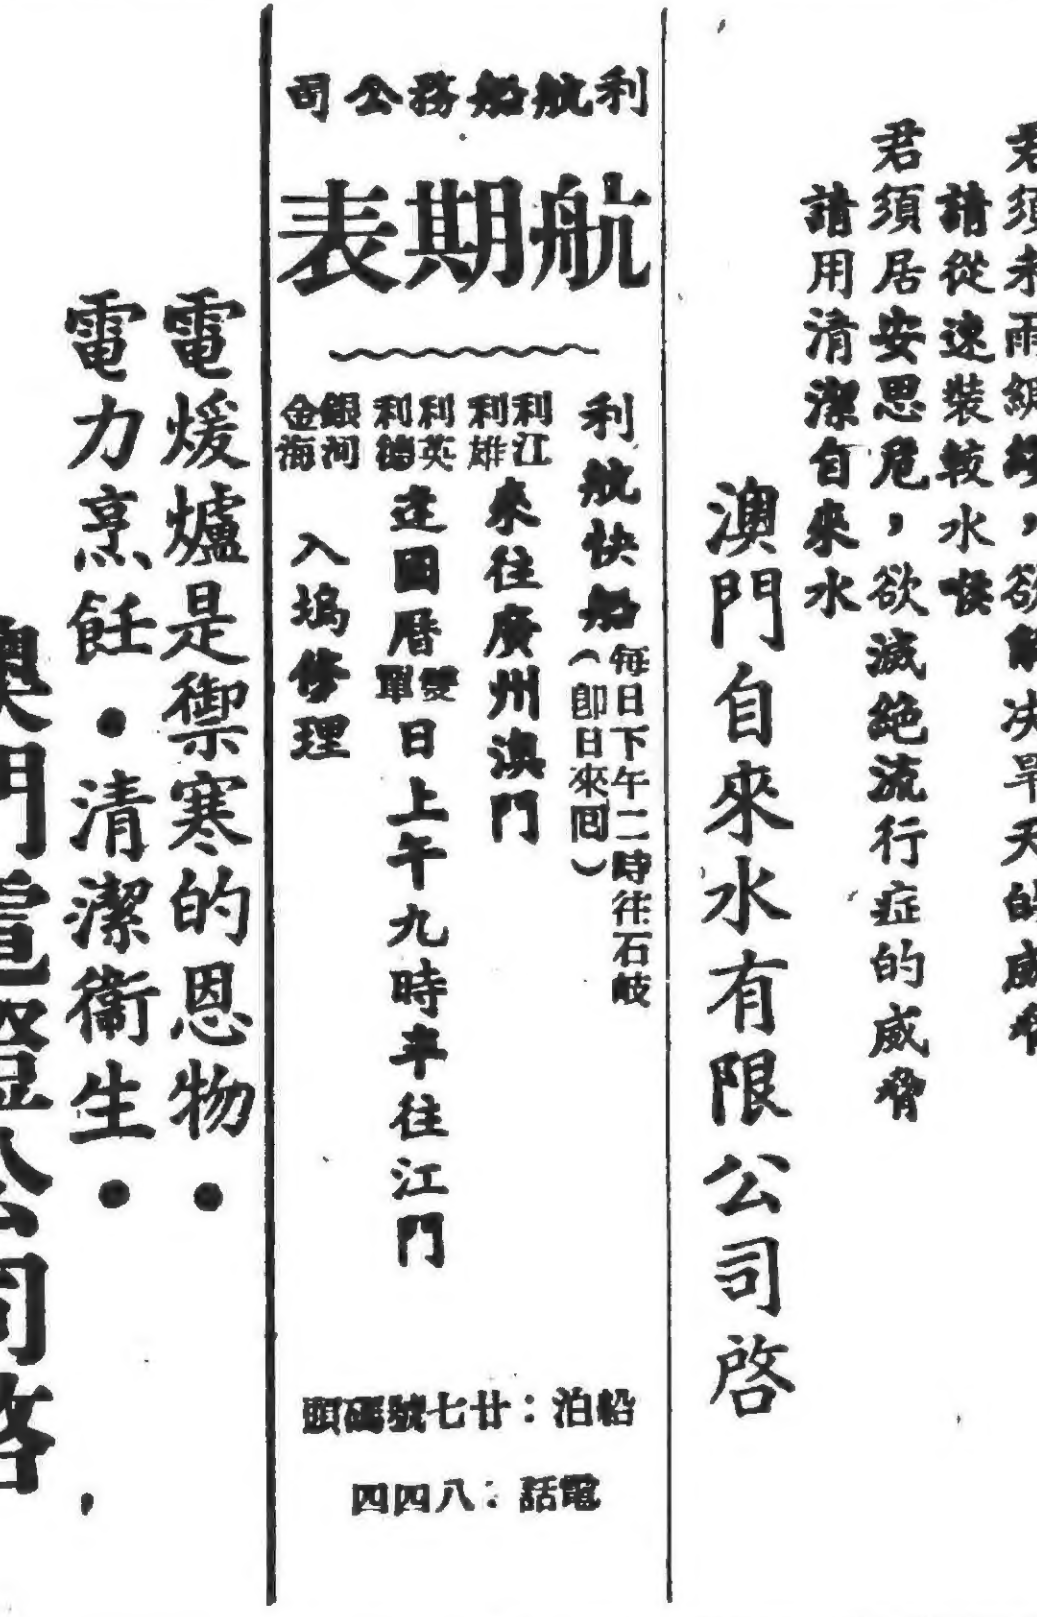 君須未雨綢繆，欲解决旱天的威脅
請從速裝較水喉
君須居安思危，欲滅絶流行症的威脅
請用清潔自來水
澳門自來水有限公司啓
利航船務公司
航期表
利航快船（即日來囘）每日下午二時往石岐
利江
利雄
來往廣州澳門
利英
利德
逢國曆雙單日上午九時半往江門
銀河
金海
入塢修理
船泊：廿七號碼頭
電話：八四四
電煖爐是禦寒的恩物．
電力烹飪．清潔衞生．
澳門電燈公司啓